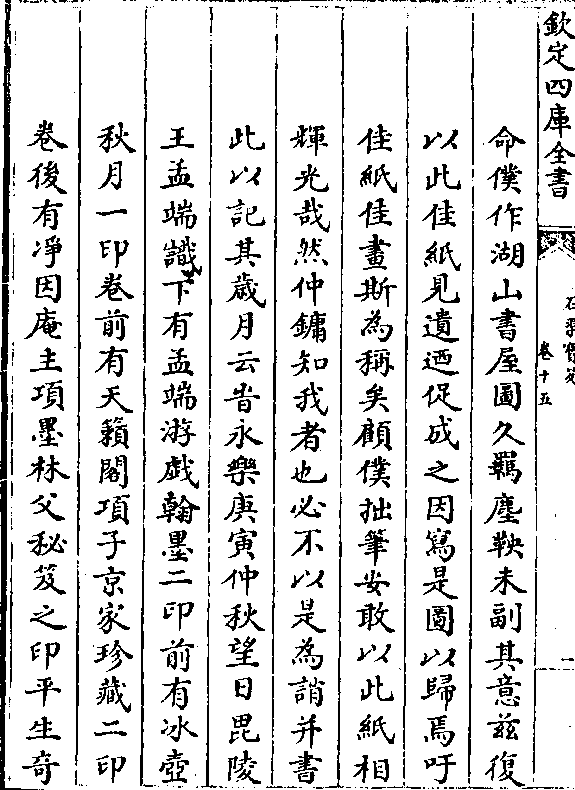 欽定四庫全書
石渠寶笈
卷十五
命僕作湖山書屋圖久羈塵鞅未副其意兹復
以此佳紙見遺迺促成之因寫是圖以歸焉吁
佳紙佳畫斯為稱矣顧僕拙筆安敢以此紙相
輝光哉然仲鏞知我者也必不以是為誚并書
此以記其歲月云旹永樂庚寅仲秋望日毘陵
王孟端識下有孟端游戯翰墨二印前有冰壺
秋月一印卷前有天籟閣項子京家珍藏二印
卷後有凈因庵主項墨林父秘笈之印平生奇